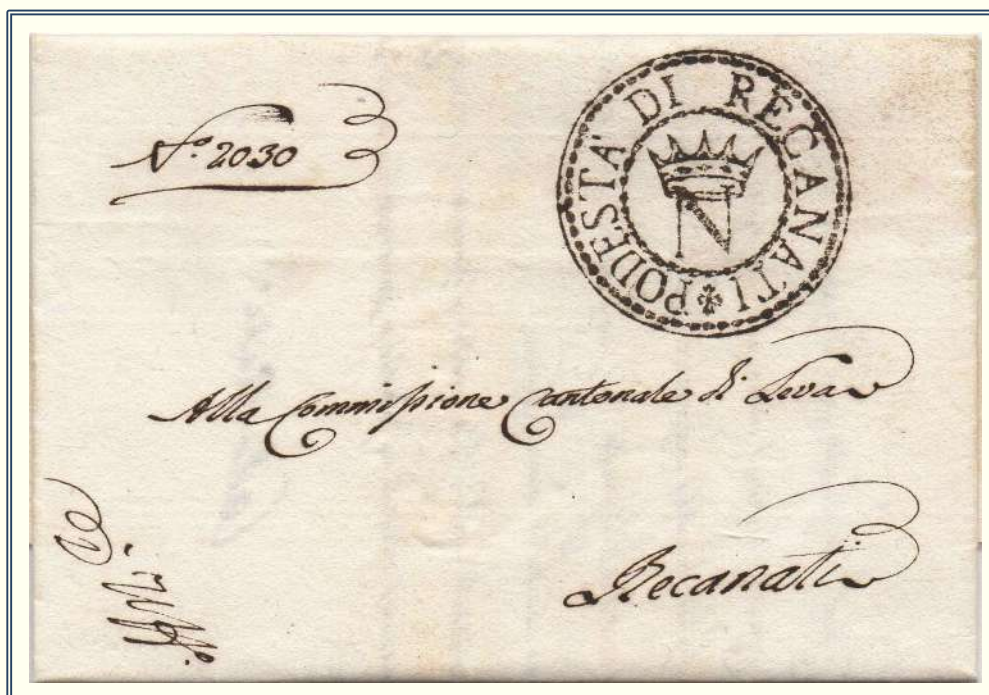 N.º 2030
PODESTÀ DI RECANATI
N
Alla Commissione Cantonale di Leva
Recanati